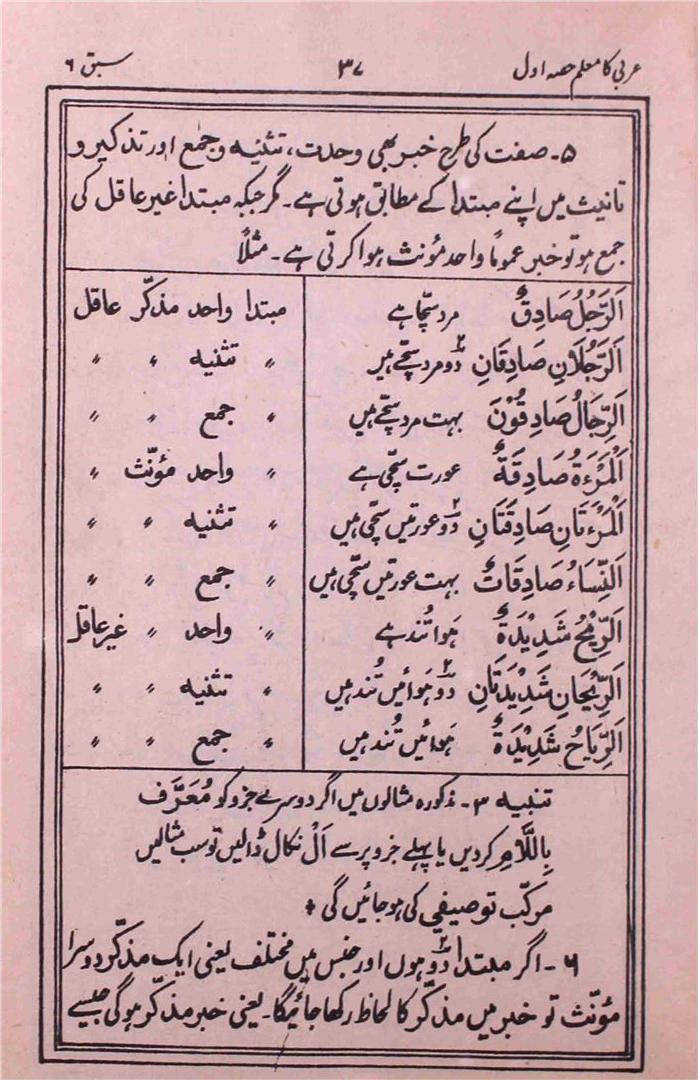 عربی کا معلم حصہ اول ۳۷ سبق ۶
۵- صفت کی طرح خبر بھی وحدت، تثنیہ وجمع اور تذکیر و
تانیث میں اپنے مبتدا کے مطابق ہوتی ہے۔ مگر جبکہ مبتدا غیر عاقل کی
جمع ہو تو خبر عموماً واحد مؤنث ہوا کرتی ہے۔ مثلاً
اَلرَّجُلُ صَادِقٌ مرد سچّا ہے مبتدا واحد مذکّر عاقل
اَلرَّجُلَانِ صَادِقَانِ دو۲ مرد سچّے ہیں 〃 تثنیہ 〃 〃
اَلرِّجَالُ صَادِقُوْنَ بہت مرد سچّے ہیں 〃 جمع 〃 〃
اَلْمَرْءَةُ صَادِقَةٌ عورت سچّی ہے 〃 واحد مؤنّث 〃
اَلْمَرْءَتَانِ صَادِقَتَانِ دو۲ عورتیں سچّی ہیں 〃 تثنیہ 〃 〃
اَلنِّسَاءُ صَادِقَاتٌ بہت عورتیں سچّی ہیں 〃 جمع 〃 〃
اَلرِّيْحُ شَدِيْدَةٌ ہَوا تُند ہے 〃 واحد 〃 غیر عاقل
اَلرِّيْحَانِ شَدِيْدَتَانِ دو۲ ہَوائیں تُند ہیں 〃 تثنیہ 〃 〃
اَلرِّيَاحُ شَدِيْدَةٌ ہَوائیں تُند ہیں 〃 جمع 〃 〃
تنبیہ ۳- مذکورہ مثالوں میں اگر دوسرے جزو کو مُعَرَّف
بِاللَّامِ کر دیں یا پہلے جزو پر سے اَلْ نکال ڈالیں تو سب مثالیں
مرکّب توصیفی کی ہو جائیں گی +
۶- اگر مبتدا دو۲ ہوں اور جنس میں مختلف یعنی ایک مذکّر دوسرا
مؤنّث تو خبر میں مذکّر کا لحاظ رکھا جائیگا۔ یعنی خبر مذکّر ہوگی جیسے